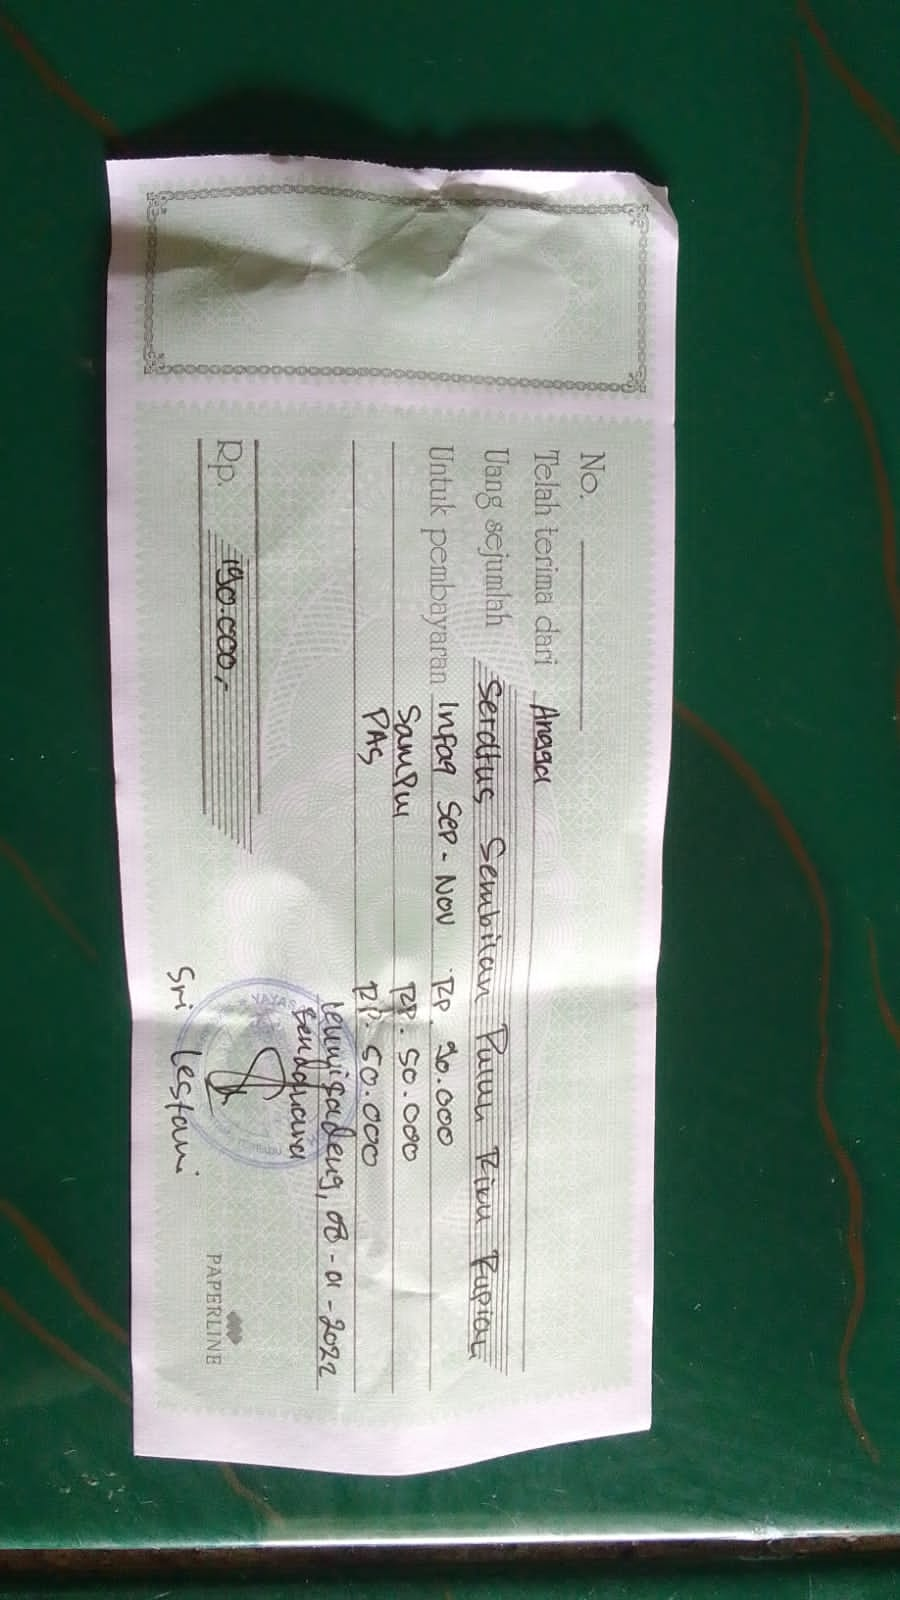 No.
Telah terima dari Angga
Uang sejumlah Seratus Sembilan Puluh Ribu Rupiah
Untuk pembayaran Infaq Sep - Nov Rp. 90.000
Sampul Rp. 50.000
PAS Rp. 50.000
Leuwigadeng, 08-01-2022
Bendahara
Rp. 190.000,-
YAYAS
Sri Lestari
PAPERLINE